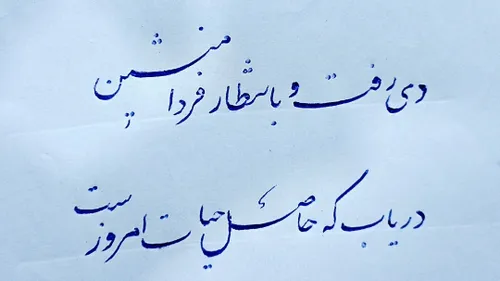 دی رفت و بانتظار فردا منشین
دریاب که حاصل حیات امروز ست